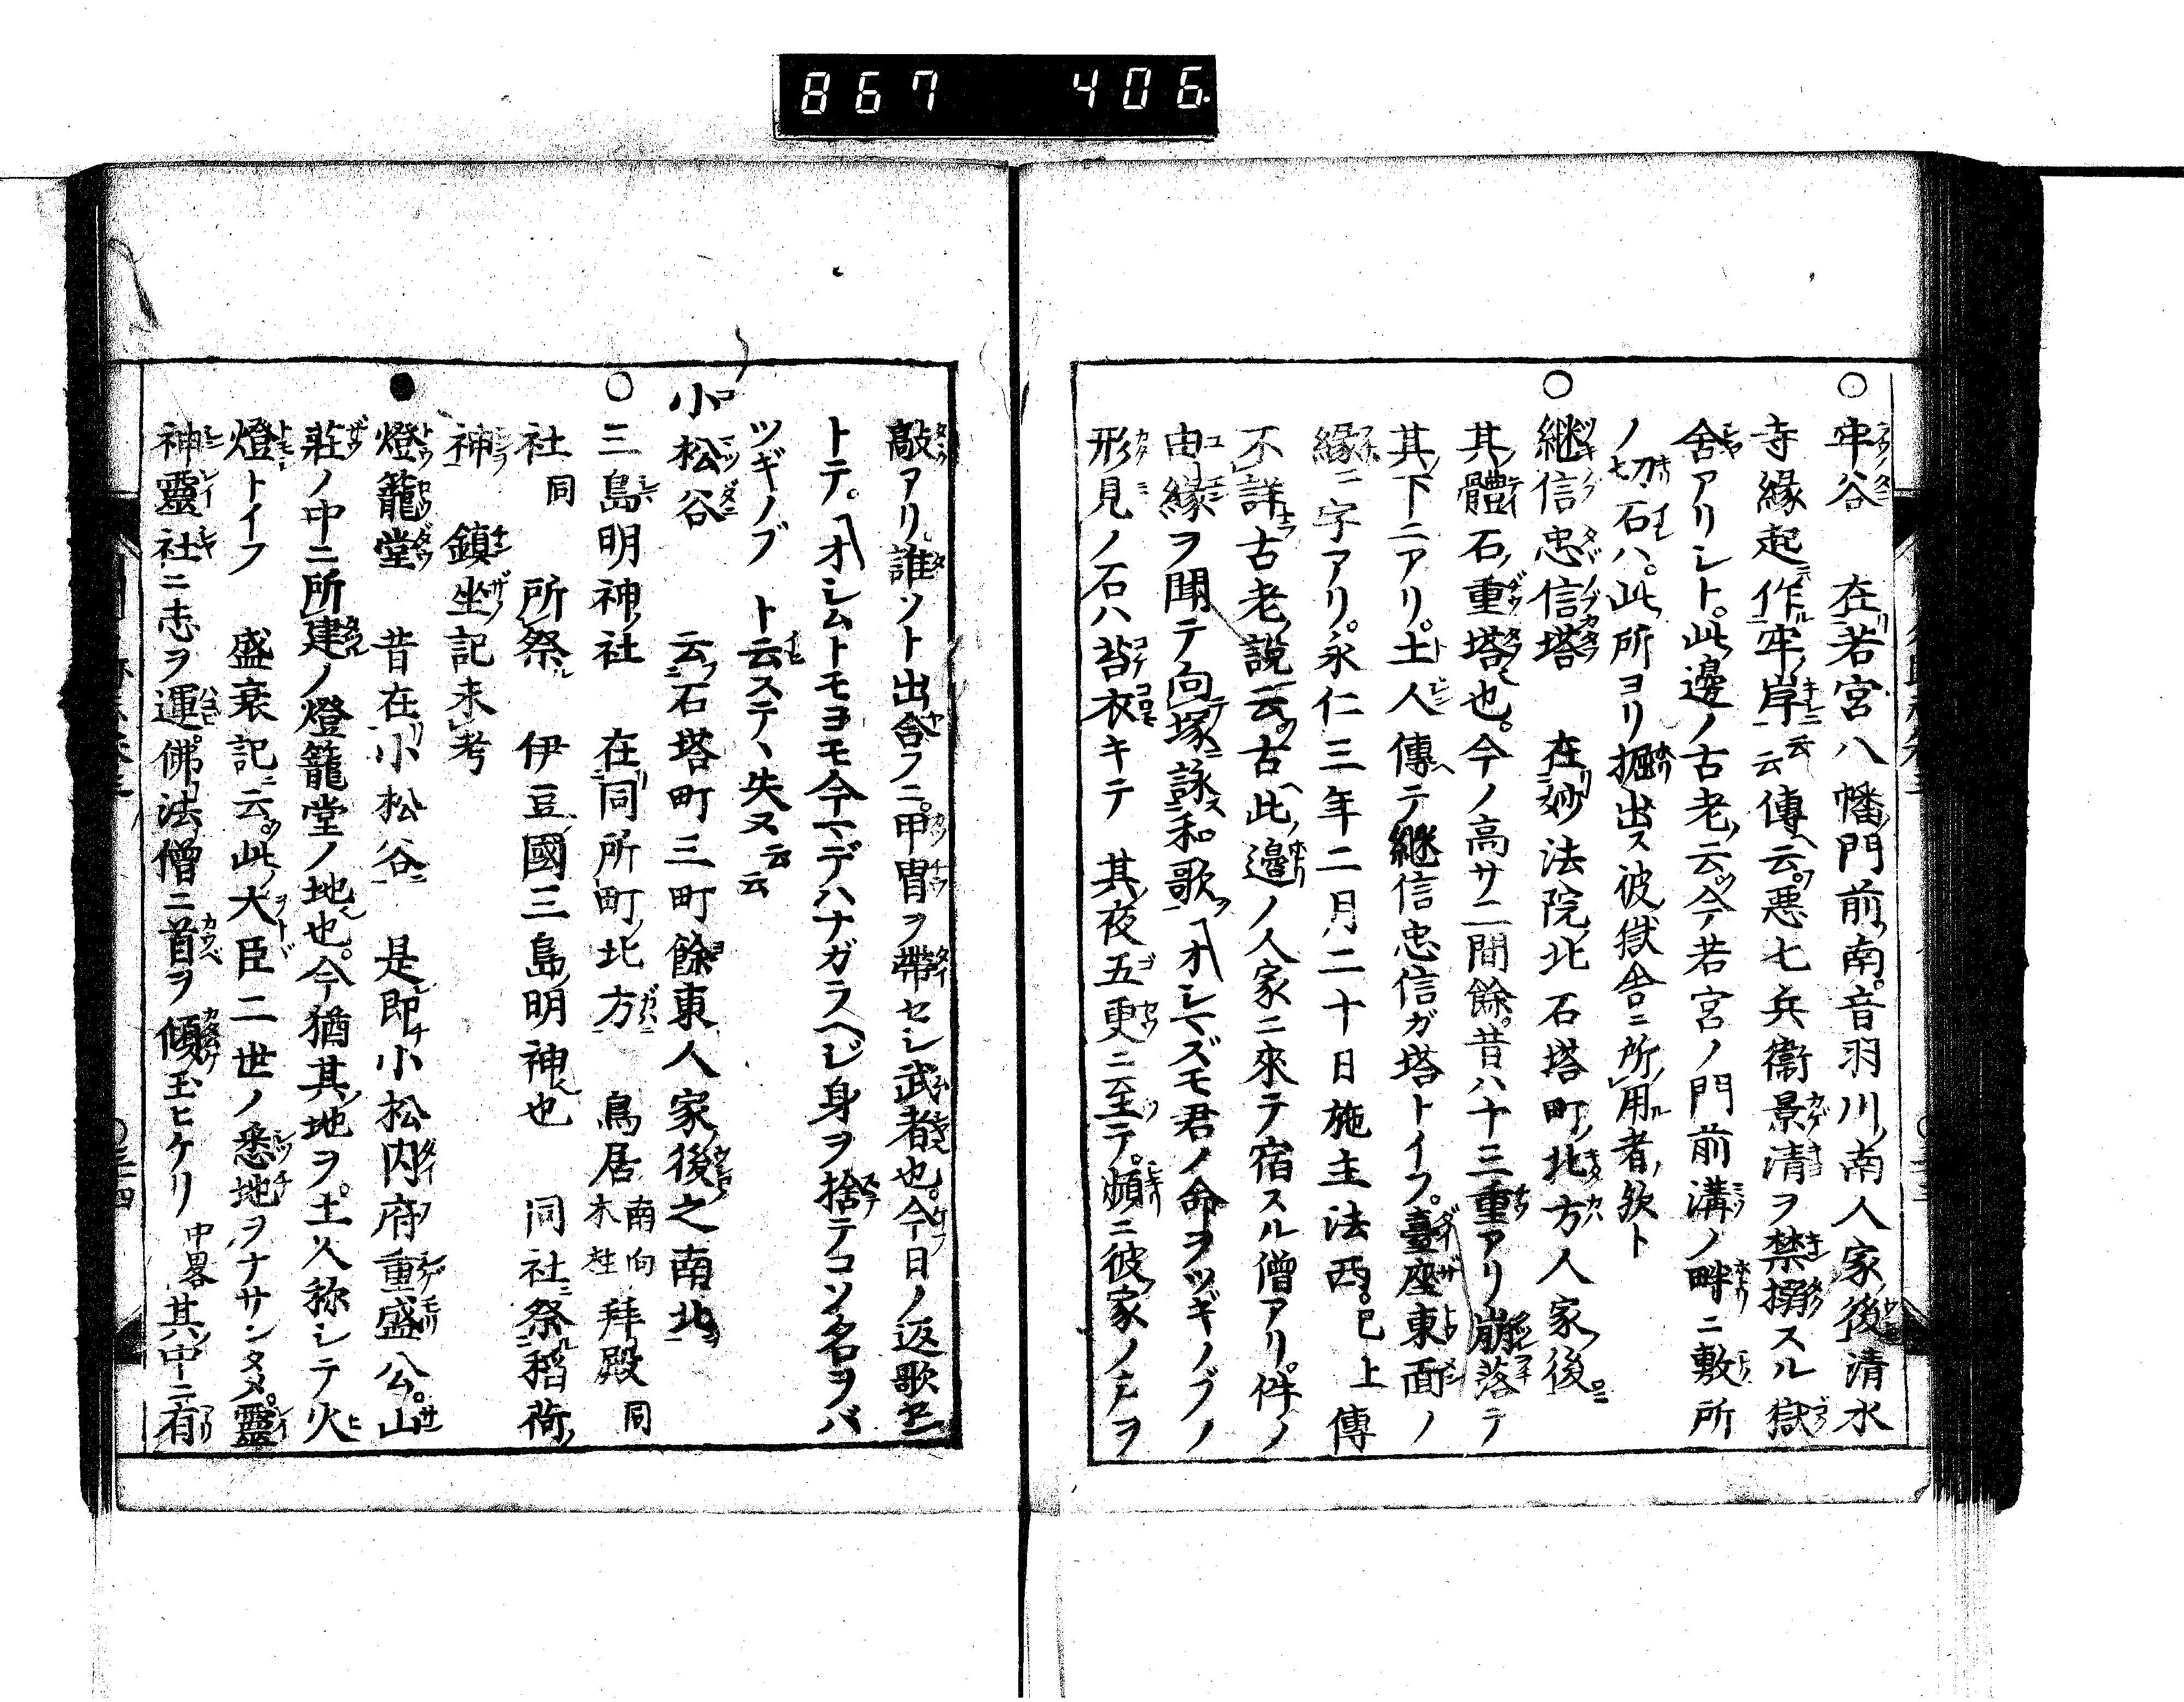 867 406.
○牢谷 在若宮八幡門前南。音羽川南人家後清水
寺縁起作牢岸云云傳云。悪七兵衞景清ヲ禁獄スル獄
舍アリシト。此邊ノ古老云。今若宮ノ門前溝ノ畔ニ敷所
ノ切石ハ。此所ヨリ掘出ス彼獄舍ニ所用者歟ト
○継信忠信塔 在妙法院北石塔町北方人家後
其體石重塔也。今ノ高サ二間餘。昔ハ十三重アリ崩落テ
其下ニアリ。土人傳テ継信忠信ガ塔トイフ。臺座東面ノ
縁ニ字アリ。永仁三年二月二十日施主法西。已上傳
不詳古老説云。古此邊ノ人家ニ來テ宿スル僧アリ。件ノ
由縁ヲ聞テ向塚詠和歌「オシマズモ君ノ命ヲツギノブノ
形見ノ石ハ苔衣キテ 其夜五更ニ至テ。頻ニ彼家ノ戸ヲ
敲アリ。誰ソト出合フニ。甲冑ヲ帶セシ武者也。今日ノ返歌セン
トテ。「オシムトモヨモ今マデハナガラヘジ身ヲ捨テコソ名ヲバ
ツギノブ ト云ステヽ失ヌ云云
小松谷 云石塔町三町餘東人家後之南北
○三島明神社 在同所町北方 鳥居南向木柱 拜殿同
社同 所祭 伊豆國三島明神也 同社祭稻荷
神 鎮坐記未考
●燈籠堂 昔在小松谷 是即小松内府重盛公。山
莊ノ中ニ所建ノ燈籠堂ノ地也。今猶其地ヲ。土人称シテ火
燈トイフ 盛衰記云。此大臣二世ノ悉地ヲナサンタメ。靈
神靈社ニ志ヲ運。佛法僧ニ首ヲ傾玉ヒケリ 中畧 其中ニ有